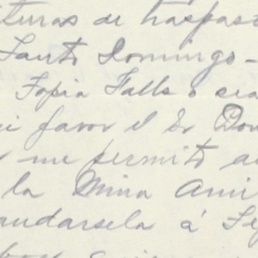 turas de traspaso
Santo Domingo -
Topia Falls o sea
mi favor el Sr Don
me permito
la Mina
mandarsela á